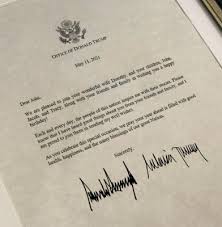 OFFICE OF DONALD TRUMP
May 11, 2021
Dear John,
We are pleased to join your wonderful wife Dorothy, and your children, John,
Jacob, and Tracy, along with your friends and family in wishing you a happy
Birthday!
Each and every day, the people of this nation
know that I have heard good things about you from your friends and family, and I
am proud to join them in sending my well wishes.
As you celebrate this special occasion, we pray your year ahead is filled with good
health, happiness, and the many blessings of our great Nation.
Sincerely,